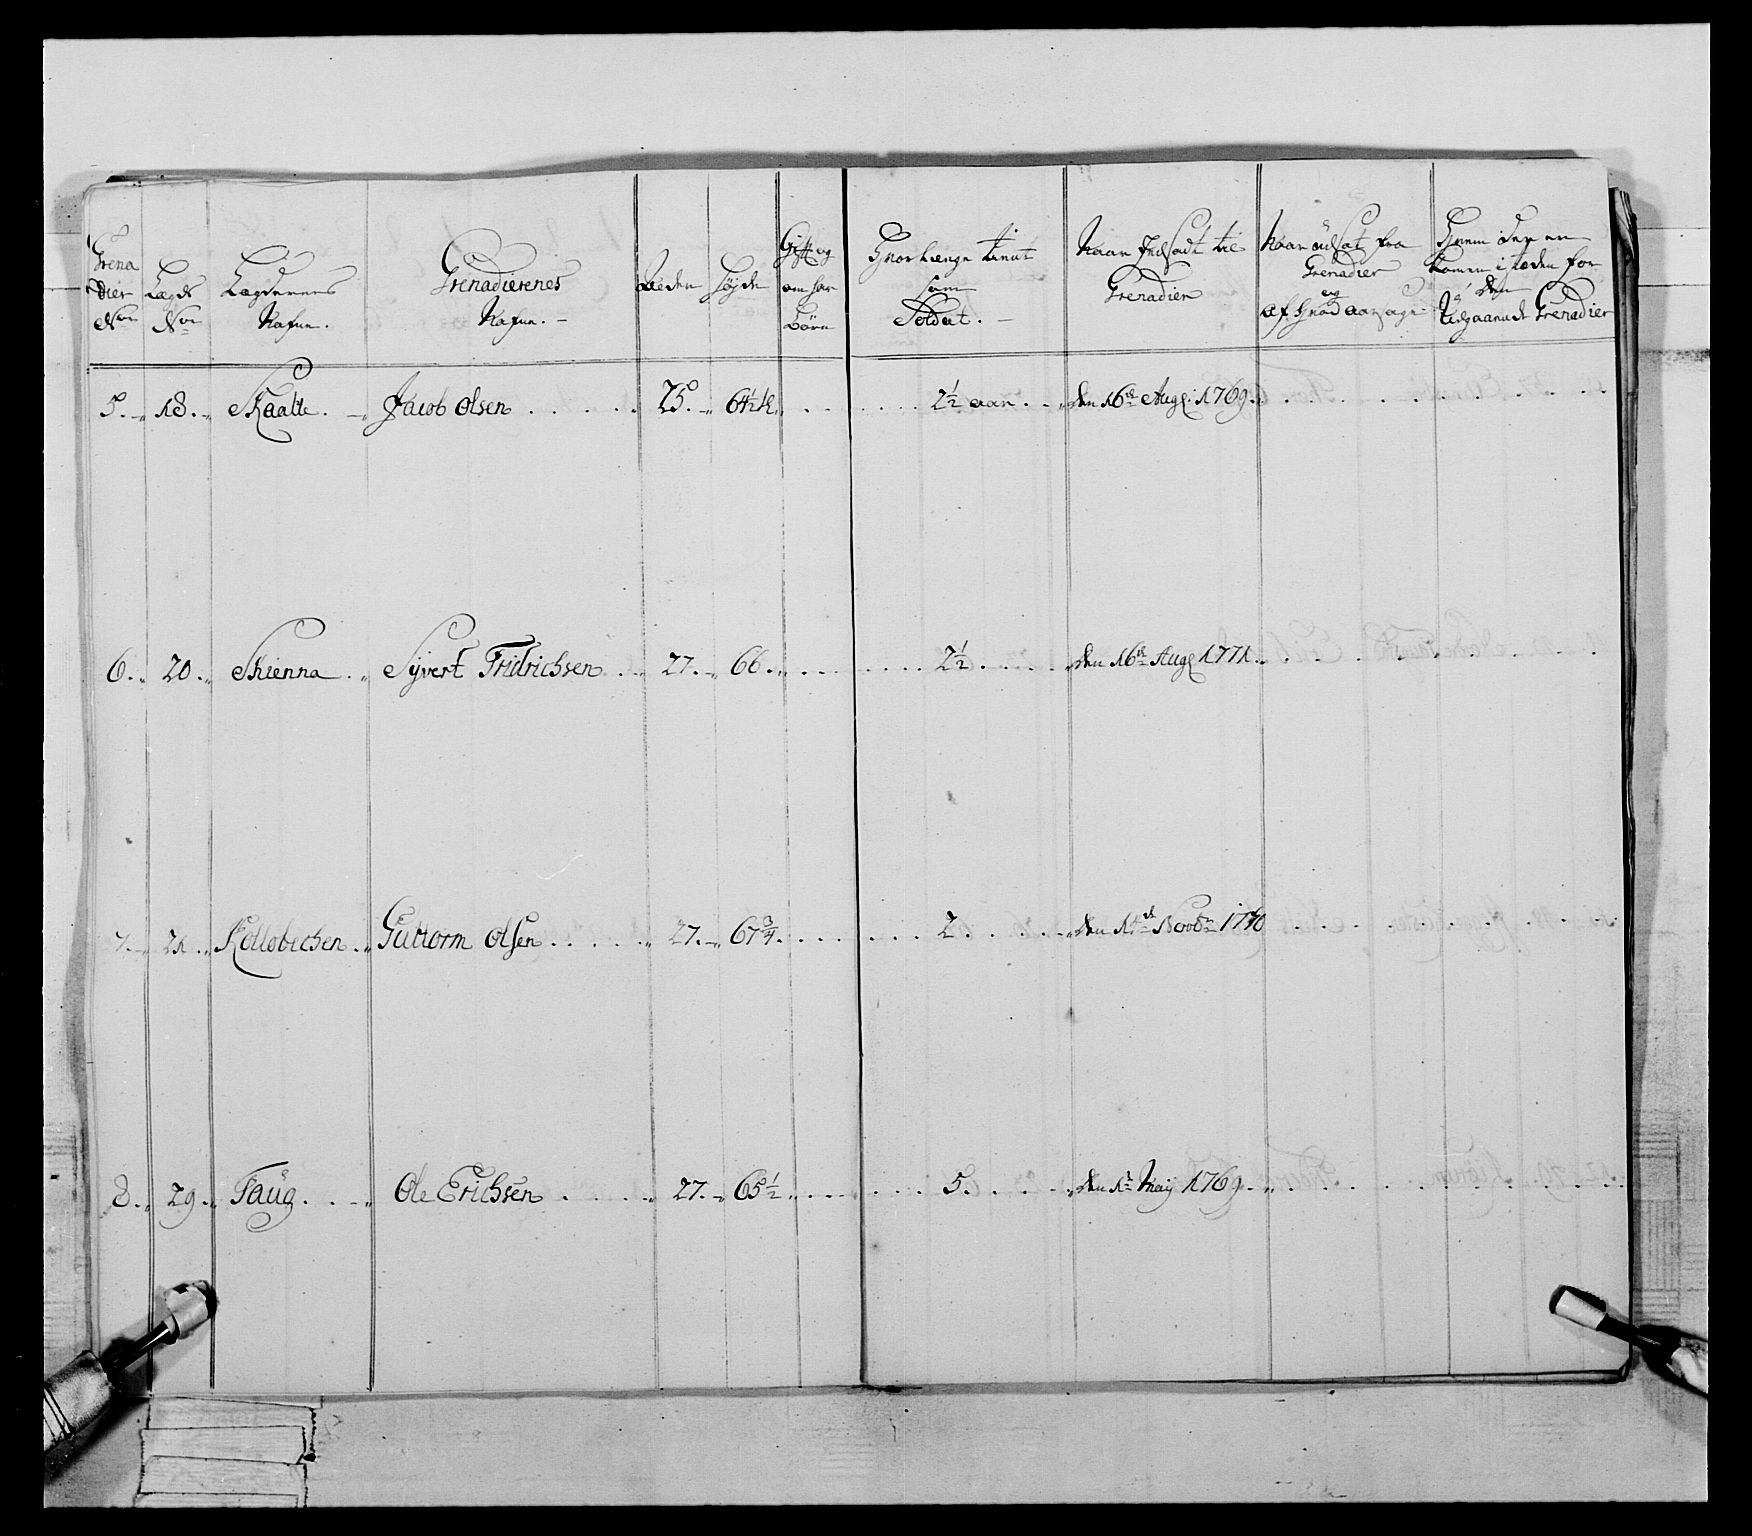 Grena dier Nor
Lægds Nor
Lægdernes Nafne.
Grenadierenes Nafne. –
Alder
Højde
Gift og om har Børn
Hvor længe tient som Soldat. –
Naar Indsadt til Grenadier
Naar udsat fra Grenadier og af hvad aarsage
Hvem der er kommen i steden for den udgaaende Grenadier
5. 18. Skaatte. Jacob Olsen 25. 64½ 2½ aar den 16de Aug: 1769.
6. 20. Skienna Syvert Fridrichsen 27. 66. 2½ den 16de Aug 1771.
7. 21. Kollobechen Guttorm Olsen 27. 67¾ 2. den 1te Novbr 1770
8. 29. Faug. Ole Erichsen 27. 65½ 5. den 1te Maij 1769.